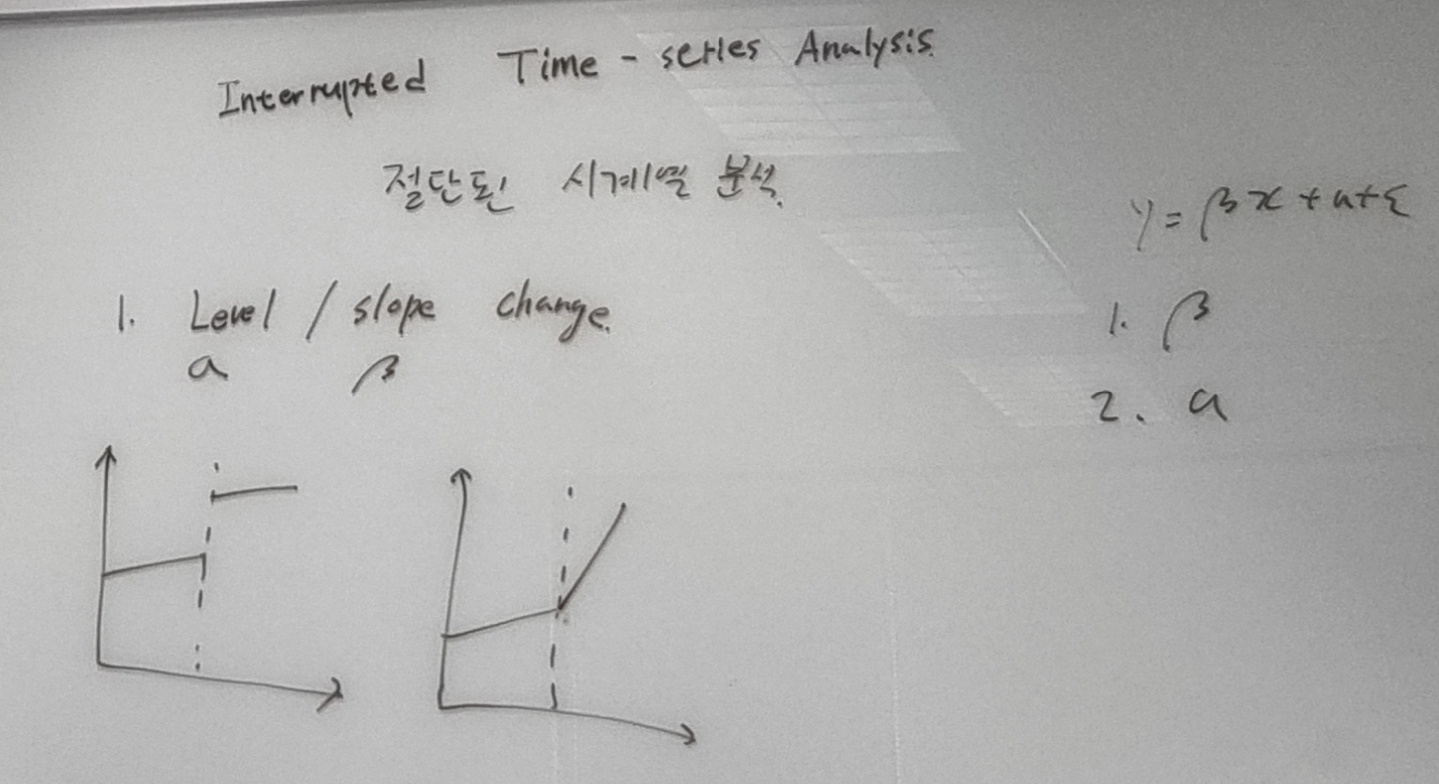 Interrupted Time-series Analysis.
절단된 시계열 분석.
1. Level / slope change.
a β
y = βx + a + ε
1. β
2. a